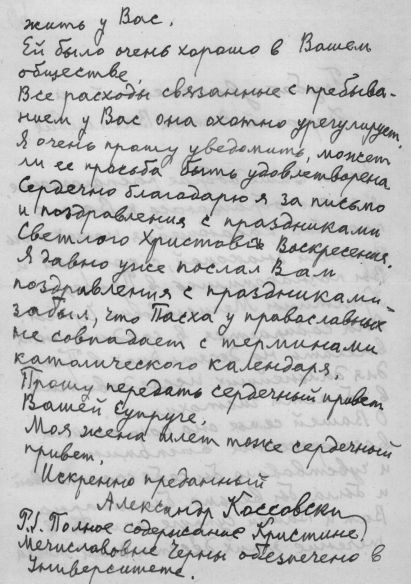 жить у Вас.
Ей было очень хорошо в Вашем
обществе.
Все расходы связанные с пребыва-
нием у Вас она охотно урегулирует.
Я очень прошу уведомить, может
ли ее просьба быть удовлетворена
Сердечно благодарю я за письмо
и поздравления с праздниками
Светлого Христова Воскресения.
Я давно уже послал Вам
поздравления с праздниками -
забыл, что Пасха у православных
не совпадает с терминами
католического календаря.
Прошу передать сердечный привет
Вашей Супруге.
Моя жена шлет тоже сердечный
привет.
Искренно преданный
Александр Коссовски
P.S. Полное содержание Кристине
Мечиславовне Черны обезпечено в
Университете.